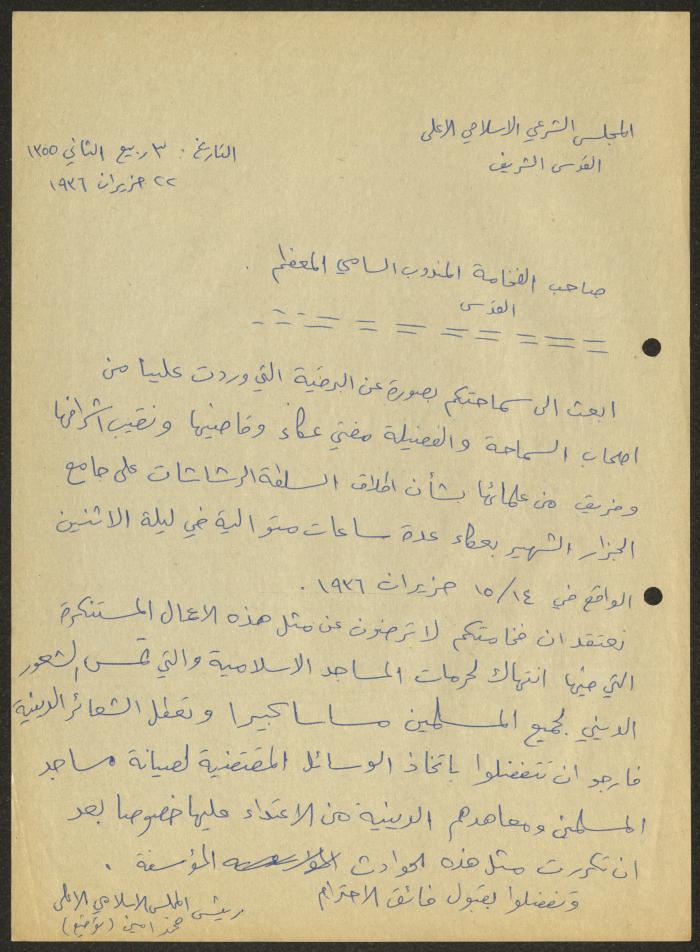 المجلس الشرعي الاسلامي الاعلى
القدس الشريف
التاريخ : ٣ ربيع الثاني ١٣٥٥
٢٢ حزيران ١٩٣٦
صاحب الفخامة المندوب السامي المعظم .
القدس
ابعث الى سماحتكم بصورة عن البرقية التي وردت علينا من
اصحاب السماحة والفضيلة مفتي عكاء وقاضيها ونقيب اشرافها
وفريق من علمائها بشأن اطلاق السلطة الرشاشات على جامع
الجزار الشهير بعكاء عدة ساعات متوالية في ليلة الاثنين
الواقع في ١٤/١٥ حزيران ١٩٣٦ .
نعتقد ان فخامتكم لا ترضون عن مثل هذه الاعمال المستنكرة
التي فيها انتهاك لحرمات المساجد الاسلامية والتي تمس الشعور
الديني لجميع المسلمين مساسا كبيرا وتعطل الشعائر الدينية
فارجو ان تتفضلوا باتخاذ الوسائل المقتضية لصيانة مساجد
المسلمين ومعاهدهم الدينية من الاعتداء عليها خصوصا بعد
ان تكررت مثل هذه الحوادث المؤسفة .
وتفضلوا بقبول فائق الاحترام
رئيس المجلس الاسلامي الاعلى
محمد امين (توقيع)